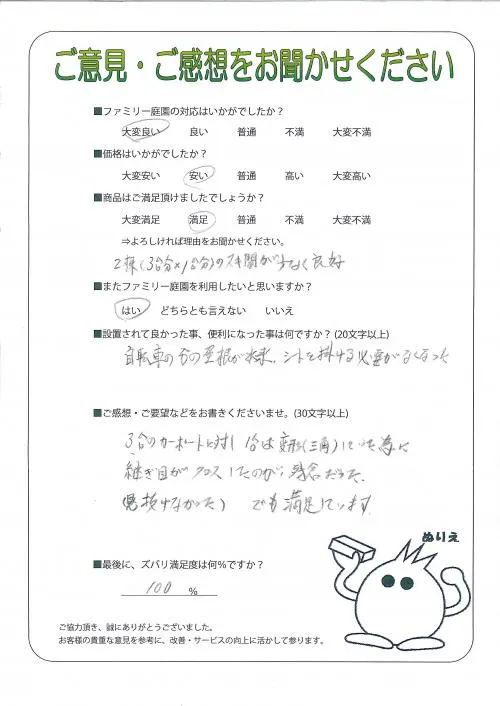 ご意見・ご感想をお聞かせください
■ファミリー庭園の対応はいかがでしたか？
大変良い 良い 普通 不満 大変不満
■価格はいかがでしたか？
大変安い 安い 普通 高い 大変高い
■商品はご満足頂けましたでしょうか？
大変満足 満足 普通 不満 大変不満
⇒よろしければ理由をお聞かせください。
2棟(3台分×1台分)のスキ間が少なく良好
■またファミリー庭園を利用したいと思いますか？
はい どちらとも言えない いいえ
■設置されて良かった事、便利になった事は何ですか？(20文字以上)
自転車の台の屋根が出来、シートを掛ける必要がなくなった
■ご感想・ご要望などをお書きくださいませ。(30文字以上)
3台のカーポートに対し1台は変形(三角)していた為に
継ぎ目がクロスしたのが、残念だった
でも満足しています。
ぬりえ
■最後に、ズバリ満足度は何％ですか？
100 %
ご協力頂き、誠にありがとうございました。
お客様の貴重な意見を参考に、改善・サービスの向上に活かして参ります。